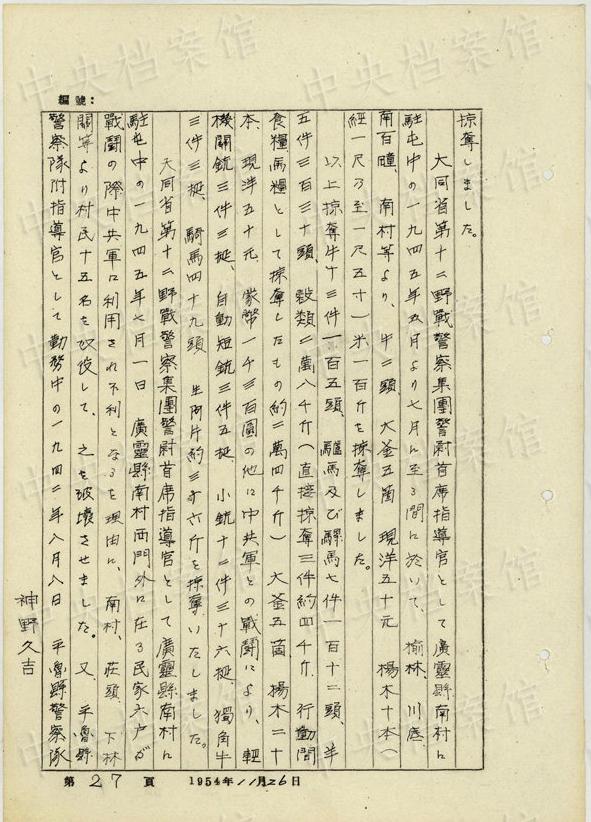 編號：
掠奪しました。
大同省第十二野戰警察集團警尉首席指導官として廣靈縣南村に
駐屯中の一九四五年五月より七月に至る間に於いて、榆林、川底、
南百疃、南村等より、牛二頭 大釜五箇 現洋五十元 楊木十本(
經一尺乃至一尺五寸)米一百斤を掠奪しました。
以上掠奪牛十三件一百五頭、驢馬及び騾馬七件一百十二頭、羊
五件三百三十頭、穀類二萬八千斤(直接掠奪三件約四千斤、行動間
食糧馬糧として掠奪したもの約二萬四千斤) 大釜五箇 楊木二十
本、現洋五十元、蒙幣一千三百圓の他に中共軍との戰鬪により、輕
機關銃三件三挺、自動短銃三件五挺、小銃十二件三十六挺、獨角牛
三件三挺、騎馬四十九頭 生阿片約 斤を掠奪いたしました。
大同省第十二野戰警察集團警尉首席指導官として廣靈縣南村に
駐屯中の一九四五年七月一日 廣靈縣南村西門外に在る民家六戸が
戰鬪の際中共軍に利用され不利となるを理由に、南村、莊頭、下林
關等より村民十五名を奴役して、之を破壞させました。又、平魯縣
警察隊附指導官として勤務中の一九四二年八月八日 平魯縣警察隊
神野久吉
第27頁 1954年11月26日
中央档案馆